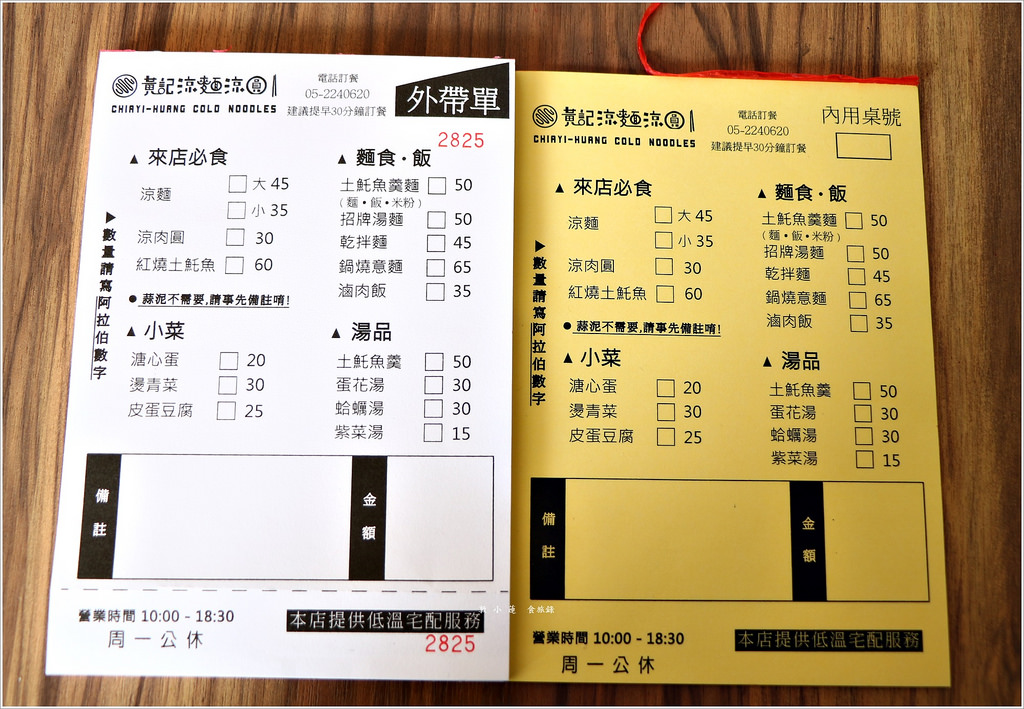 黃記涼麵涼圓
CHIAYI-HUANG COLD NOODLES
電話訂餐
05-2240620
建議提早30分鐘訂餐
外帶單
2825
▲ 來店必食
涼麵 □ 大 45
□ 小 35
涼肉圓 □ 30
紅燒土魠魚 □ 60
● 蒜泥不需要,請事先備註唷!
▶數量請寫阿拉伯數字
▲ 小菜
溏心蛋 □ 20
燙青菜 □ 30
皮蛋豆腐 □ 25
▲ 麵食・飯
土魠魚羹麵 □ 50
(麵・飯・米粉)
招牌湯麵 □ 50
乾拌麵 □ 45
鍋燒意麵 □ 65
滷肉飯 □ 35
▲ 湯品
土魠魚羹 □ 50
蛋花湯 □ 30
蛤蠣湯 □ 30
紫菜湯 □ 15
備註
金額
營業時間 10:00 - 18:30
周一公休
本店提供低溫宅配服務
2825
黃記涼麵涼圓
CHIAYI-HUANG COLD NOODLES
電話訂餐
05-2240620
建議提早30分鐘訂餐
內用桌號
▲ 來店必食
涼麵 □ 大 45
□ 小 35
涼肉圓 □ 30
紅燒土魠魚 □ 60
● 蒜泥不需要,請事先備註唷!
▶數量請寫阿拉伯數字
▲ 小菜
溏心蛋 □ 20
燙青菜 □ 30
皮蛋豆腐 □ 25
▲ 麵食・飯
土魠魚羹麵 □ 50
(麵・飯・米粉)
招牌湯麵 □ 50
乾拌麵 □ 45
鍋燒意麵 □ 65
滷肉飯 □ 35
▲ 湯品
土魠魚羹 □ 50
蛋花湯 □ 30
蛤蠣湯 □ 30
紫菜湯 □ 15
備註
金額
營業時間 10:00 - 18:30
周一公休
本店提供低溫宅配服務
小蓮 食旅錄